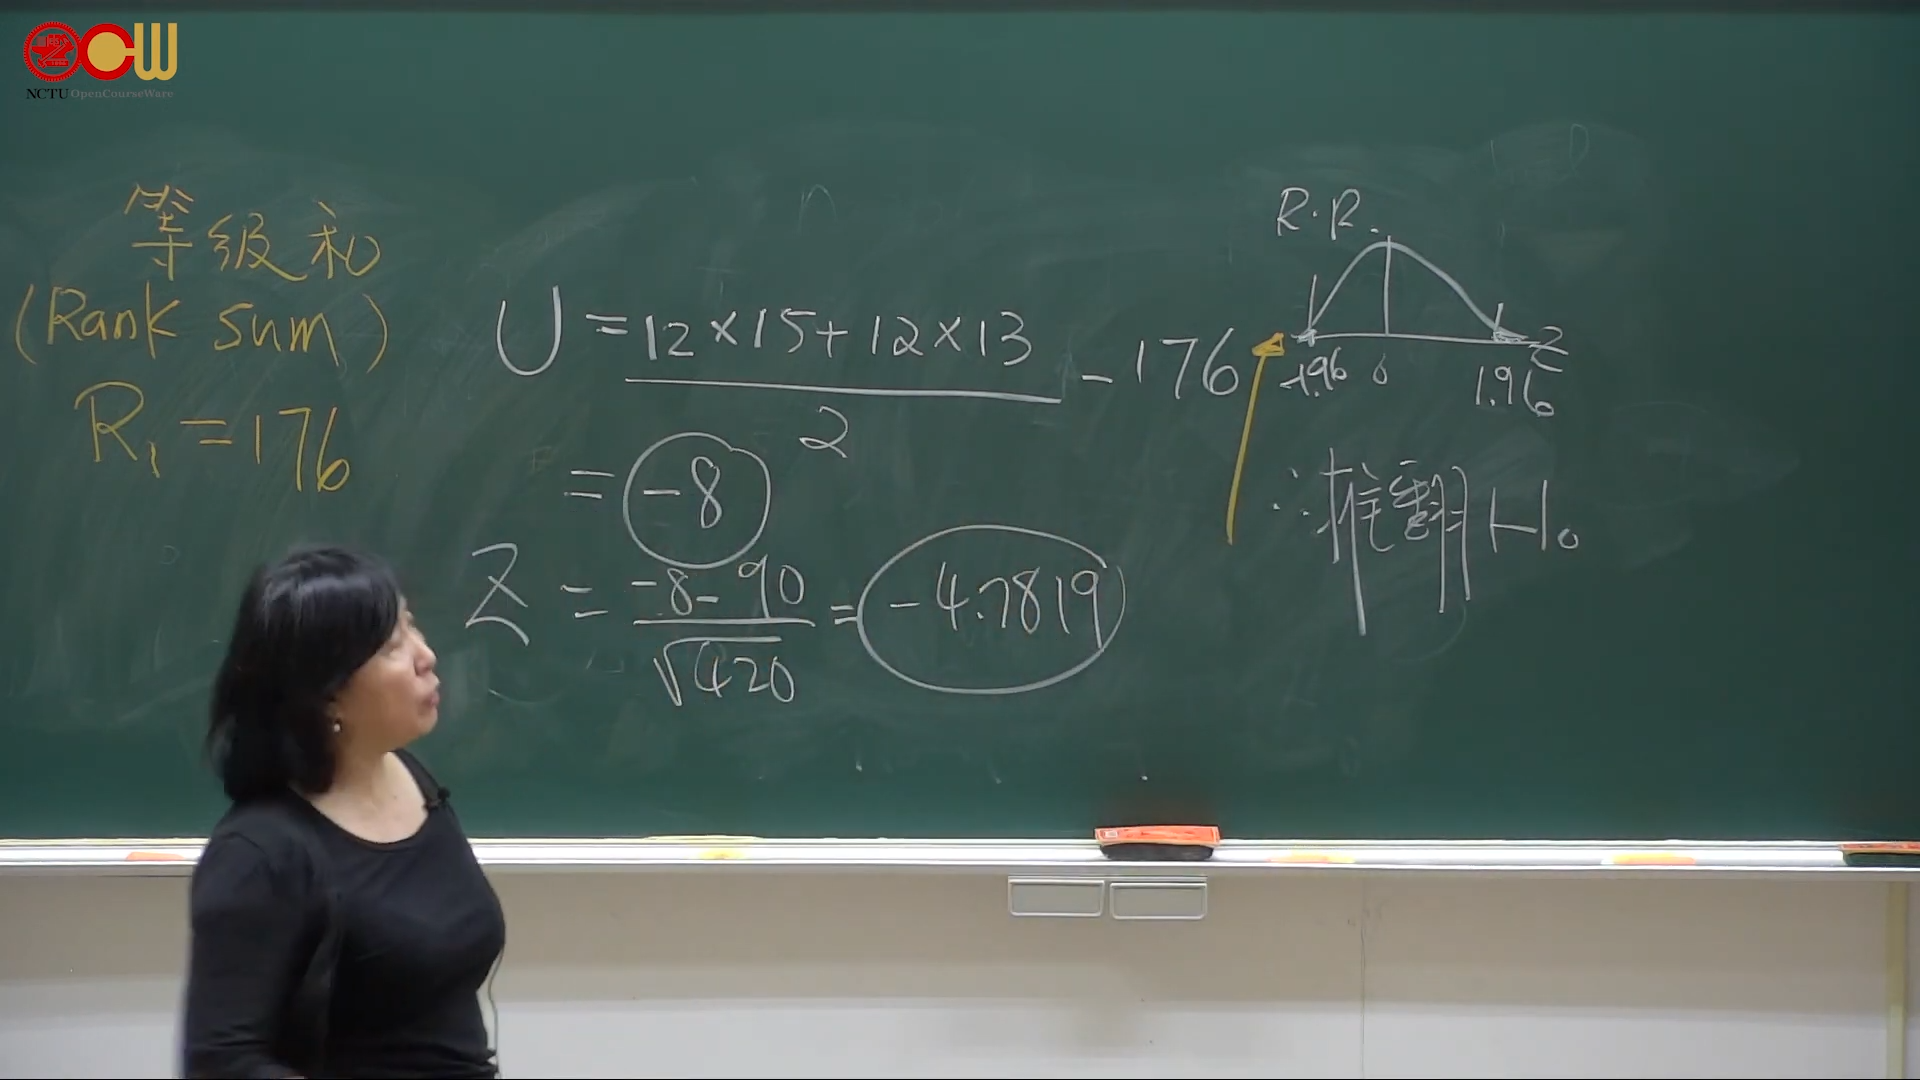 NCTU OpenCourseWare
等級和
(Rank sum)
R₁ = 176
U = (12×15+12×13)/2 - 176
= -8
Z = (-8-90)/√420 = -4.7819
R.R.
-1.96 0 1.96 Z
∴推翻H₀